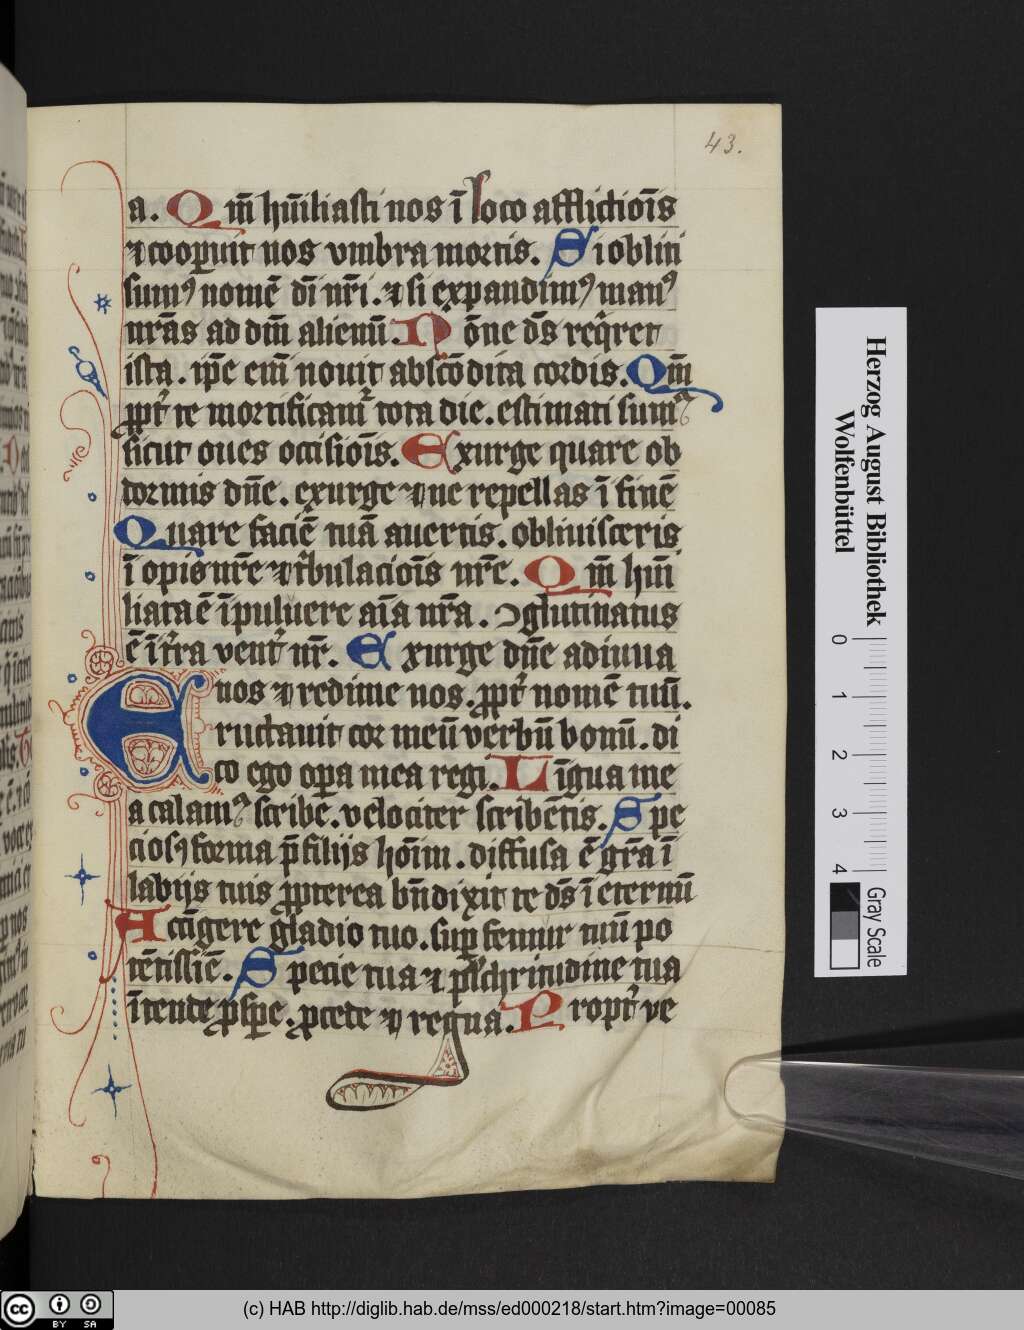 43.
a. Qm̄ hūiliasti nos ī loco afflictiōis
⁊ coop̄uit nos vmbra mortis. Si obliti
sumꝰ nomē dī nr̄i. ⁊ si expandimꝰ manꝰ
nr̄as ad dm̄ alienū. Nōne ds̄ req̄ret
ista. ip̄e em̄ nouit abscōdita cordis. Qm̄
ꝓpt̄ te mortificamr̄ tota die. estimati sumꝰ
sicut oues occisiōis. Exurge quare ob
dormis dn̄e. exurge ⁊ ne repellas ī finē
Quare faciē tuā auertis. obliuisceris
īopie nr̄e ⁊ tr̄bulaciōis nr̄e. Qm̄ hūi
liata ē ī puluere aīa nr̄a. ꝯglutinatus
ē ī tr̄ra vent̄ nr̄. Exurge dn̄e adiuua
nos ⁊ redime nos. ꝓpt̄ nomē tuū.
Eructauit cor meū verbū bonū. di
co ego oꝑa mea regi. Līgua me
a calamꝰ scribe. velociter̄ scribētis. Spe
ciosꝰ forma p̄ filijs hōim. diffusa ē gr̄a ī
labijs tuis ꝓpterea bn̄dixit te ds̄ ī eternū
Accīgere gladio tuo. suꝑ femur tuū po
tētissīē. Specie tua ⁊ pl̄chritudine tua
ītende ꝓsꝑe. ꝓcede ⁊ regna. Propt̄ ve
Herzog August Bibliothek
Wolfenbüttel
0 1 2 3 4
Gray Scale
cc BY SA
(c) HAB http://diglib.hab.de/mss/ed000218/start.htm?image=00085